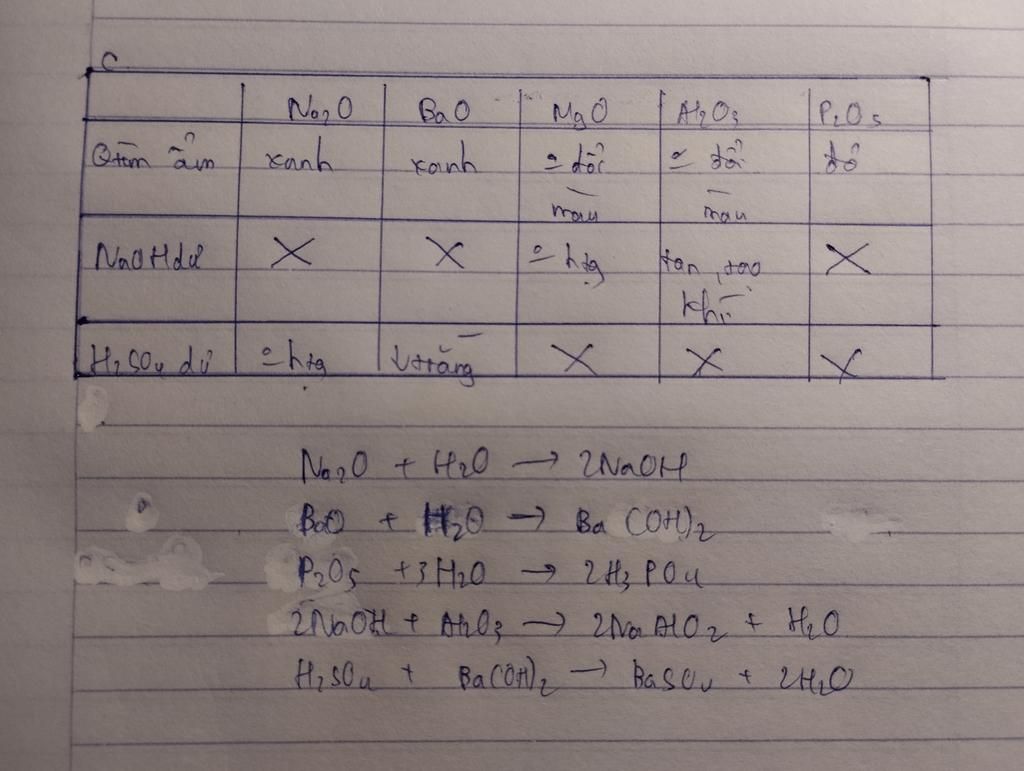 C
Na2O BaO MgO Al2O3 P2O5
Qtím ẩm xanh xanh ō đổi màu ō đổi màu đỏ
NaOH dư X X ō htg tan, tạo khí X
H2SO4 dư ō htg ↓trắng X X X
Na2O + H2O → 2NaOH
BaO + H2O → Ba(OH)2
P2O5 + 3H2O → 2H3PO4
2NaOH + Al2O3 → 2NaAlO2 + H2O
H2SO4 + Ba(OH)2 → BaSO4 + 2H2O